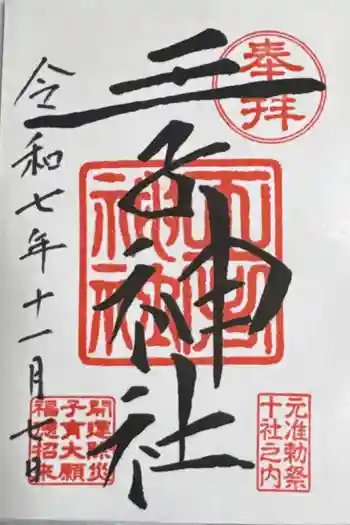 奉拝
王子神社
王子
神社
令和七年十一月 日
元准勅祭
十社之内
開運除災
子育大願
福徳招来